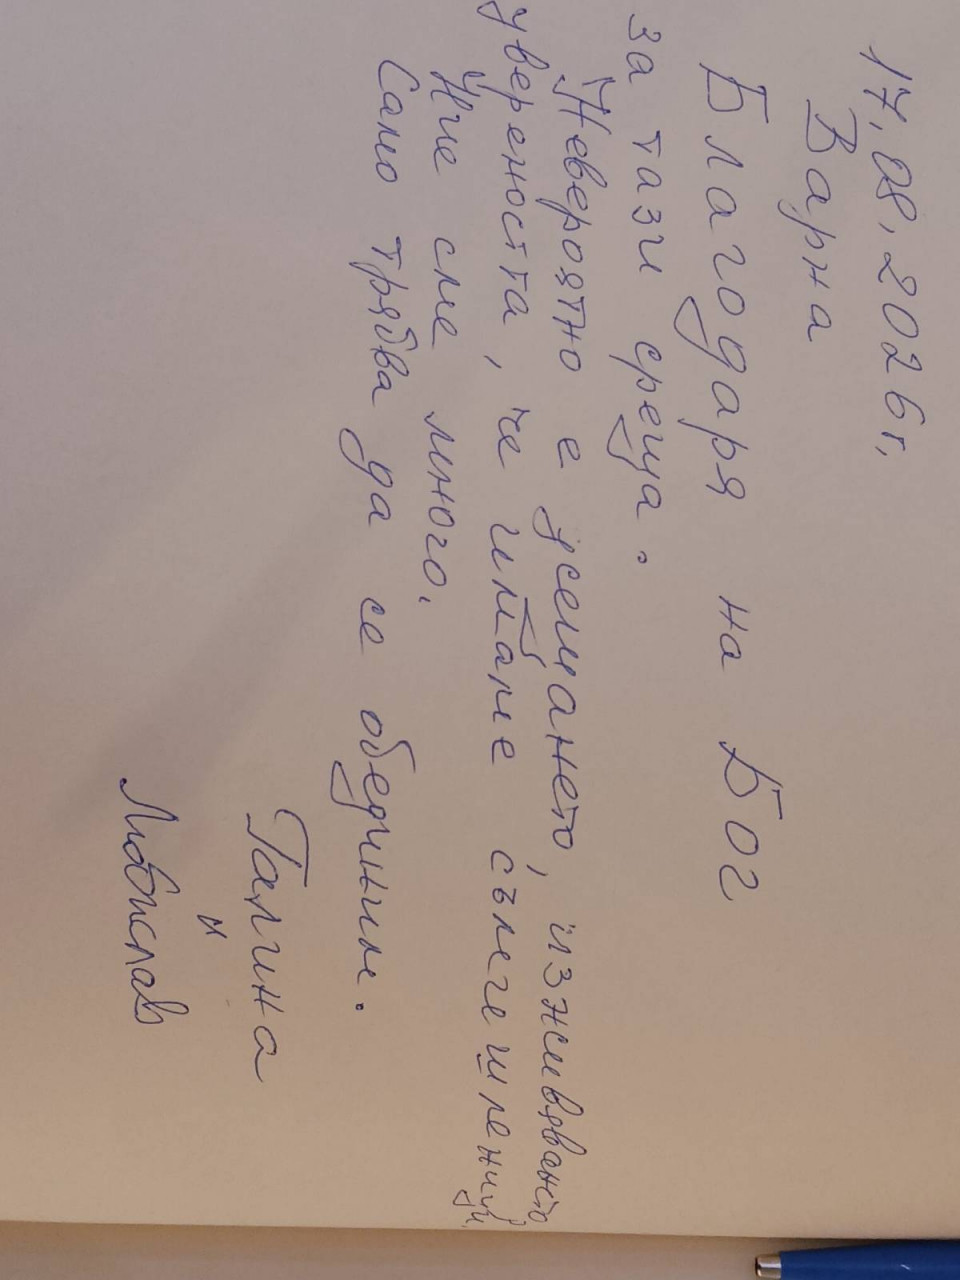 17.08.2026г.
Варна
Благодаря на Бог
за тази среща.
Невероятно е усещането, изживяването
увереността, че имаме съмишленици.
Ние сме много.
Само трябва да се обединим.
Галина
и
Любослав